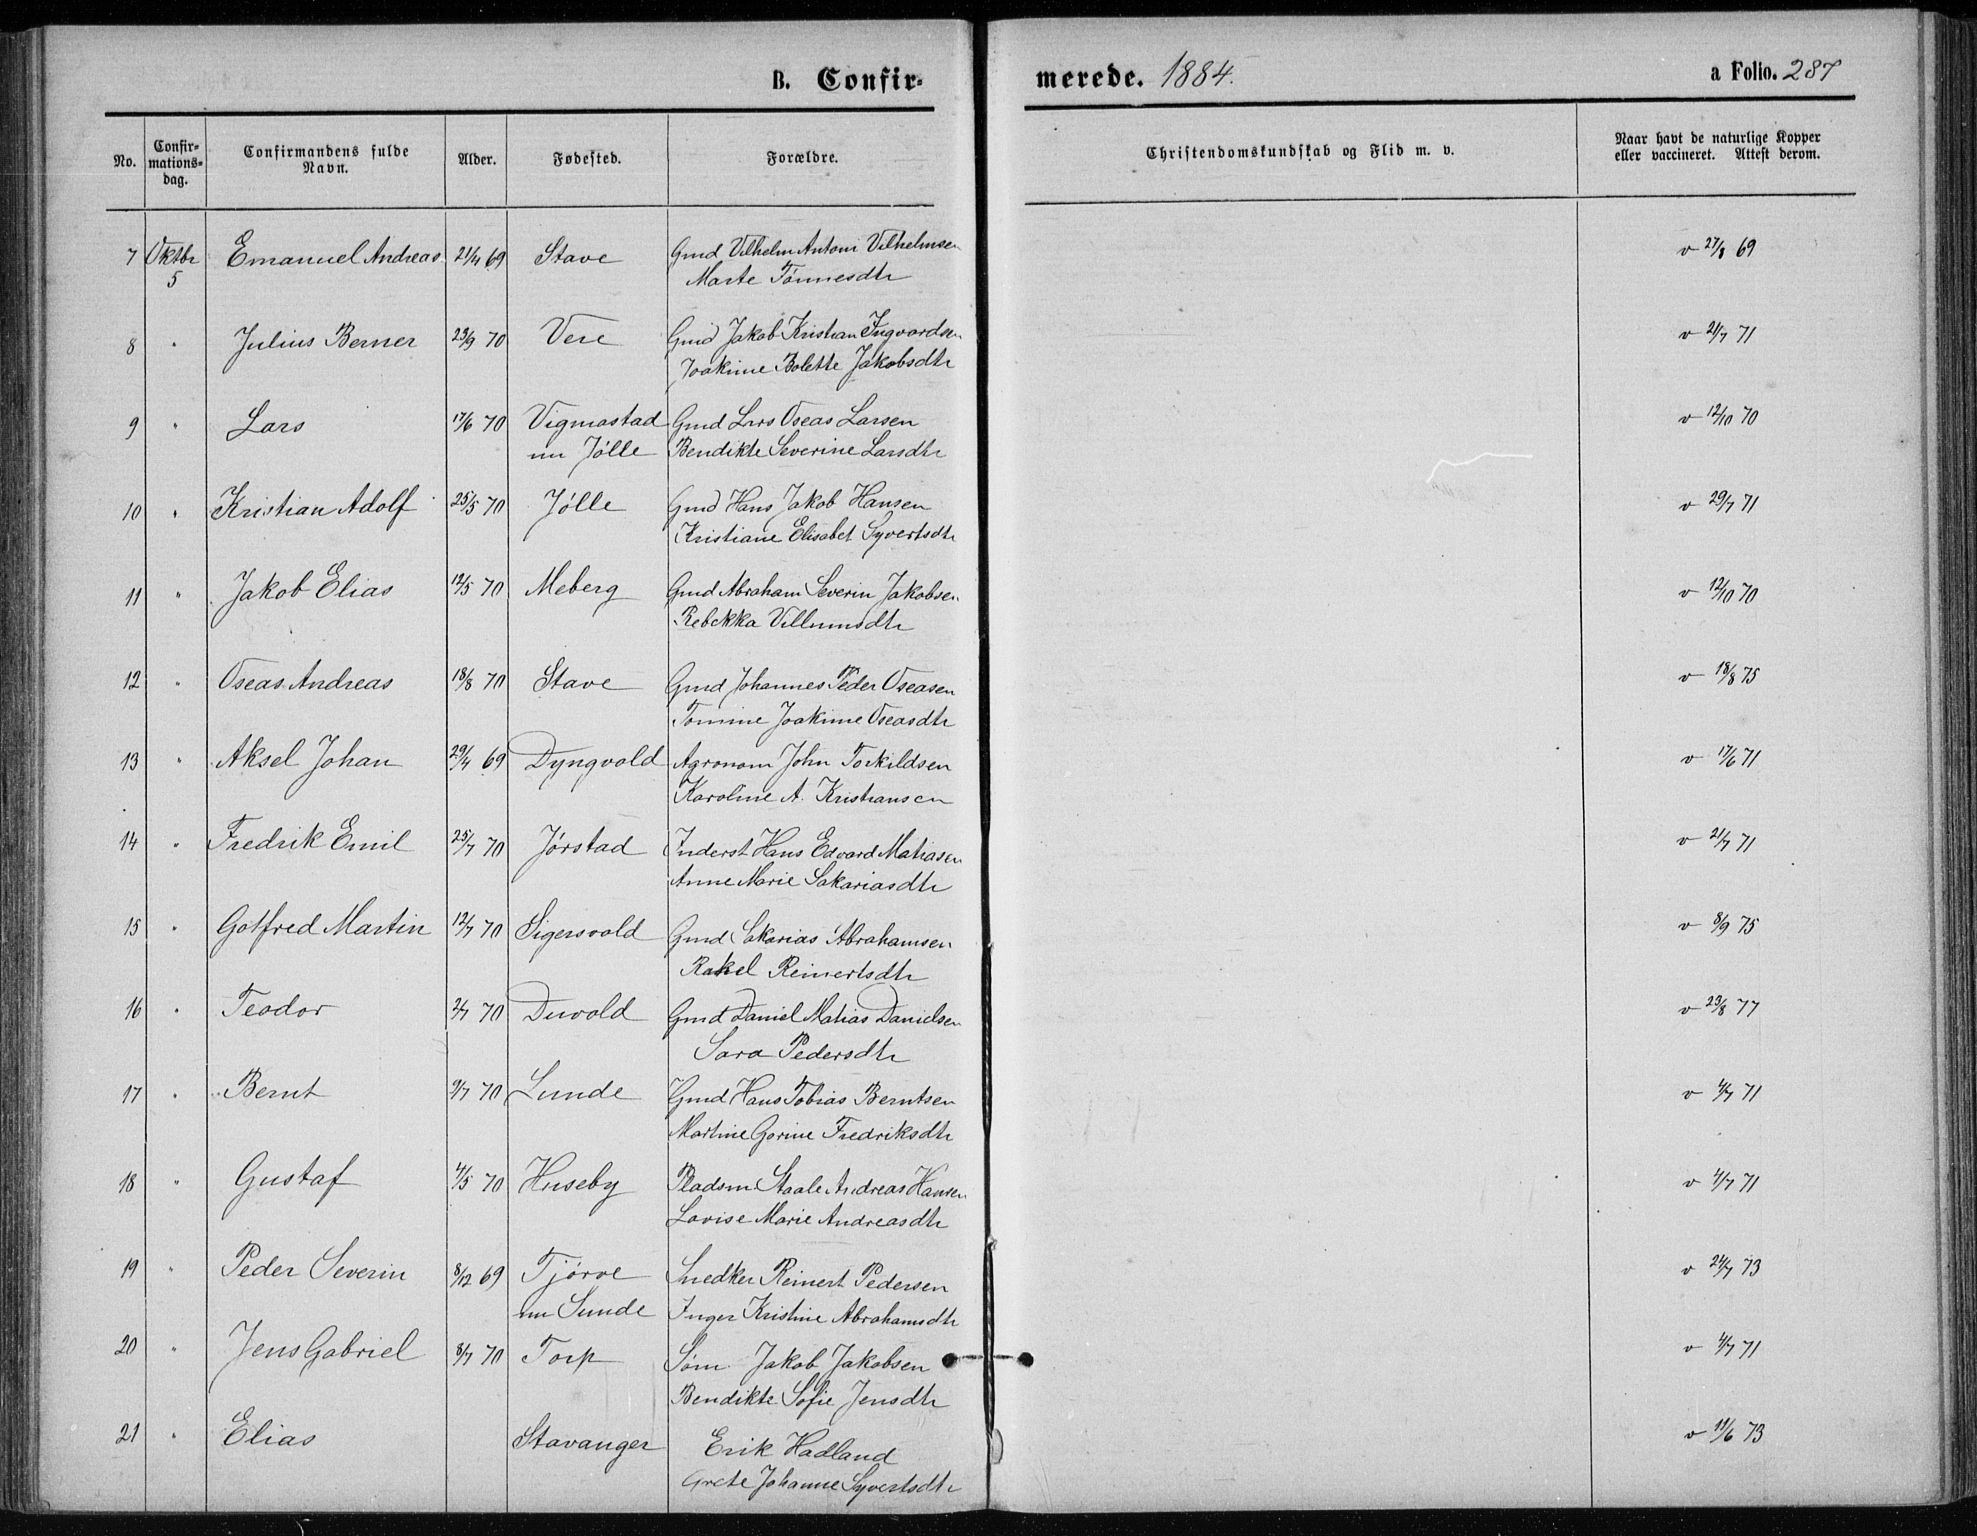 B. Confir-
merede. 1884.
a Folio. 287
No.
Confir-
mations-
dag.
Confirmandens fulde
Navn.
Alder.
Fødested.
Forældre.
Christendomskundskab og Flid m. v.
Naar havt de naturlige Kopper
eller vaccineret. Attest derom.
7 Oktbr Emanuel Andreas 21/4 69 Stave Gmd Vilhelm Antoni Vilhelmsen v 27/8 69
5 Marte Tønnesdtr
8 " Julius Berner 23/9 70 Vere Gmd Jakob Kristian Ingvardsen v 21/7 71
Joakime Bolette Jakobsdtr
9 " Lars 17/6 70 Vigmostad Gmd Lars Oseas Larsen v 12/10 70
nu Jølle Bendikte Severine Larsdtr
10 " Kristian Adolf 25/5 70 Jølle Gmd Hans Jakob Hansen v 29/7 71
Kristiane Elisabet Syvertsdtr
11 " Jakob Elias 12/5 70 Meberg Gmd Abraham Severin Jakobsen v 12/10 70
Rebekka Villumsdtr
12 " Oseas Andreas 18/8 70 Stave Gmd Johannes Peder Oseasen v 18/8 75
Tomine Joakime Oseasdtr
13 " Aksel Johan 29/4 69 Dyngvold Agronom John Torkildsen v 17/6 71
Karoline A. Kristiansen
14 " Fredrik Emil 25/7 70 Jørstad Inderst Hans Edvard Matiasen v 21/7 71
Anne Marie Sakariasdtr
15 " Gotfred Martin 12/7 70 Sigersvold Gmd Sakarias Abrahamsen v 8/9 75
Rakel Reinertsdtr
16 " Teodor 2/7 70 Duvold Gmd Daniel Matias Danielsen v 23/8 77
Sara Pedersdtr
17 " Bernt 9/7 70 Lunde Gmd Hans Tobias Berntsen v 4/7 71
Martine Gorine Fredriksdtr
18 " Gustaf 4/5 70 Huseby Pladsm Staale Andreas Hansen v 4/7 71
Lovise Marie Andreasdtr
19 " Peder Severin 8/12 69 Tjørve Snedker Reinert Pedersen v 24/7 73
nu Sunde Inger Kristine Abrahamsdtr
20 " Jens Gabriel 8/7 70 Torp Søm. Jakob Jakobsen v 4/7 71
Bendikte Sofie Jensdtr
21 " Elias Stavanger Erik Hadland v 11/6 73
Grete Johanne Syvertsdtr